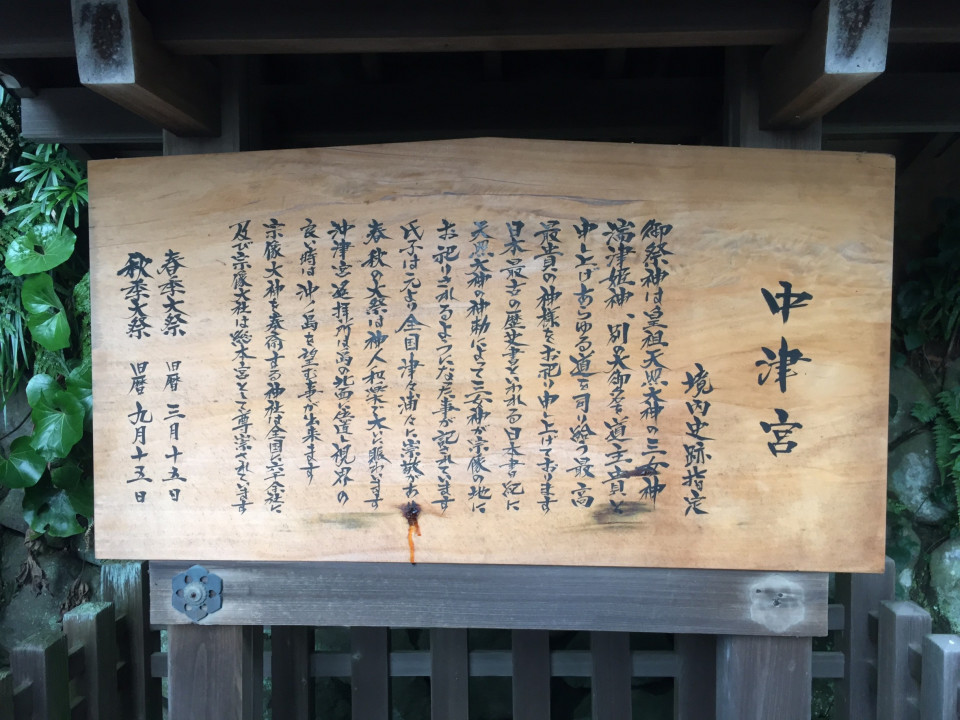 中津宮
境内史跡指定
御祭神は皇祖天照大神の三女神
湍津姫神、別の大御名を道主貴と
申し上げあらゆる道を司り給う最高
最貴の神様をお祀り申し上げております
日本最古の歴史書といわれる日本書紀に
天照大神の神勅によって三女神が宗像の地に
お祀りされるようになった事が記されています
氏子は元より全国津々浦々に崇敬があり
春秋の大祭は神人和楽で大いに賑わいます
沖津宮遥拝所は島の北西にあり視界の
良い時は沖ノ島を望む事が出来ます
宗像大神を奉斎する神社は全国に六千余社に
及び宗像大社は総本宮として尊崇されています
春季大祭 旧暦 三月十五日
秋季大祭 旧暦 九月十五日